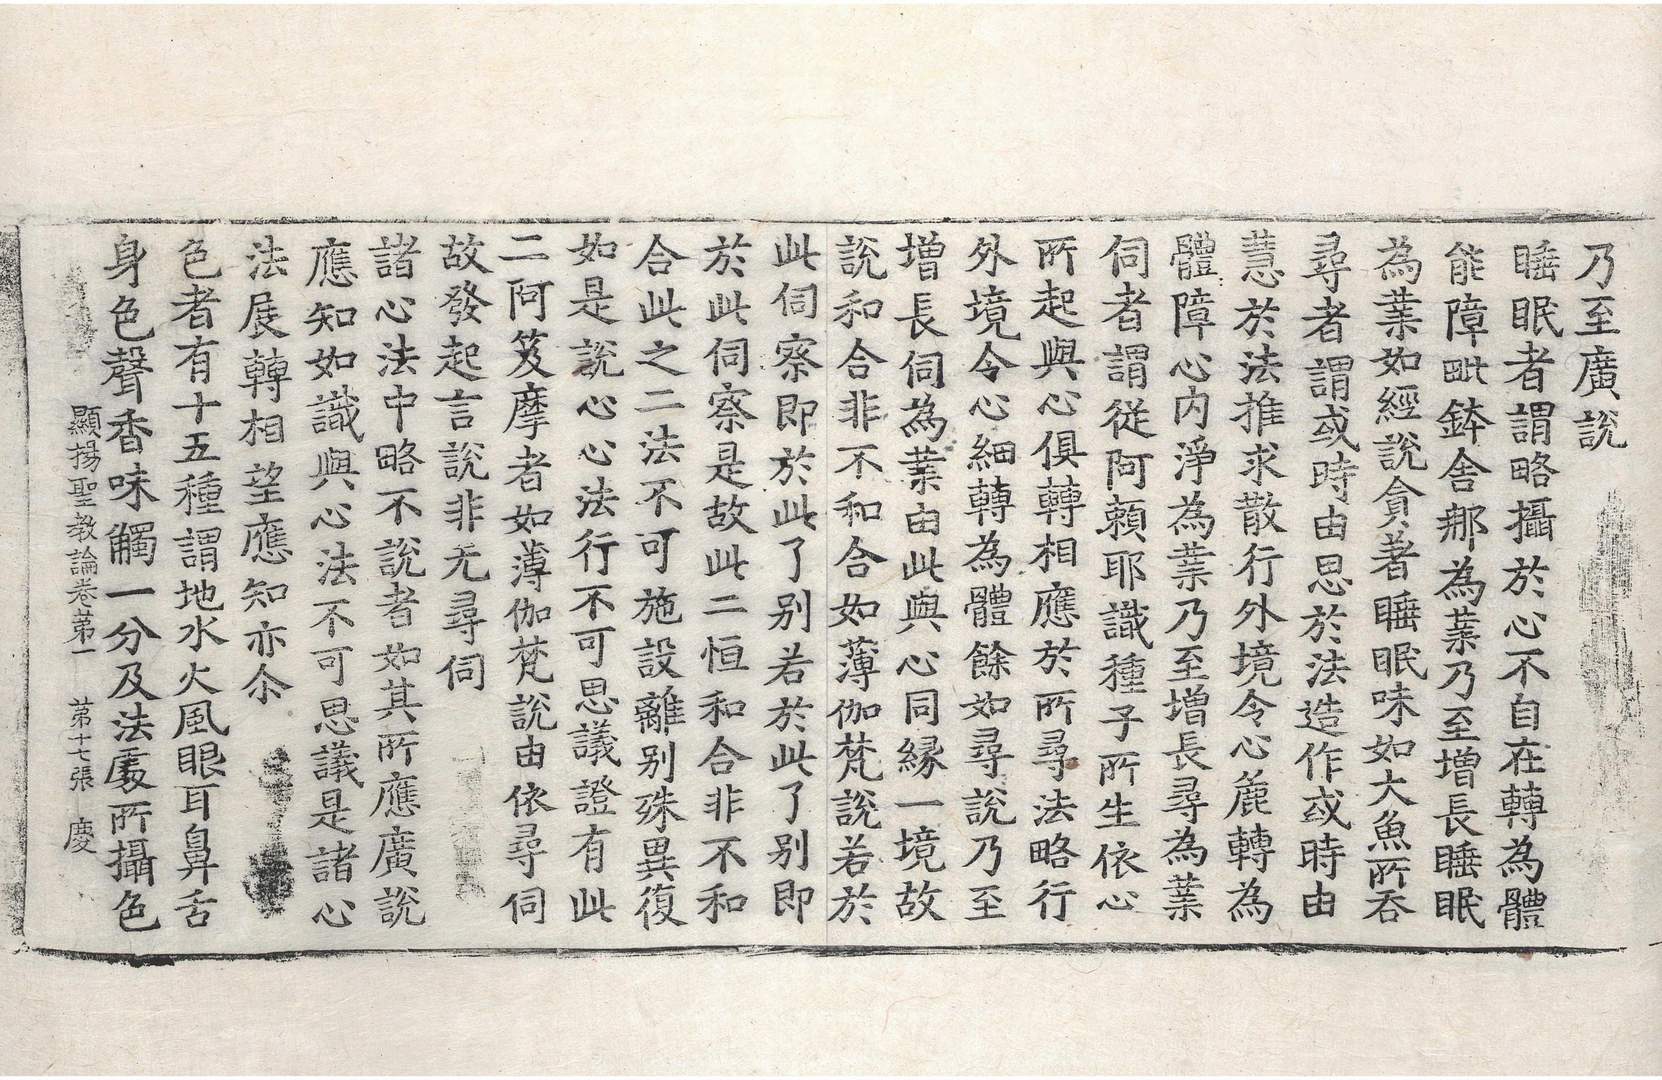 乃至廣說
睡眠者謂略攝於心不自在轉為體
能障毗鉢舍那為業乃至增長睡眠
為業如經說貪著睡眠味如大魚所吞
尋者謂或時由思於法造作或時由
慧於法推求散行外境令心麁轉為
體障心內淨為業乃至增長尋為業
伺者謂從阿賴耶識種子所生依心
所起與心俱轉相應於所尋法略行
外境令心細轉為體餘如尋說乃至
增長伺為業由此與心同緣一境故
說和合非不和合如薄伽梵說若於
此伺察即於此了别若於此了别即
於此伺察是故此二恒和合非不和
合此之二法不可施設離别殊異復
如是說心心法行不可思議證有此
二阿笈摩者如薄伽梵說由依尋伺
故發起言說非无尋伺
諸心法中略不說者如其所應廣說
應知如識與心法不可思議是諸心
法展轉相望應知亦尒
色者有十五種謂地水火風眼耳鼻舌
身色聲香味觸一分及法處所攝色
顯揚聖教論卷苐一 苐十七張 慶